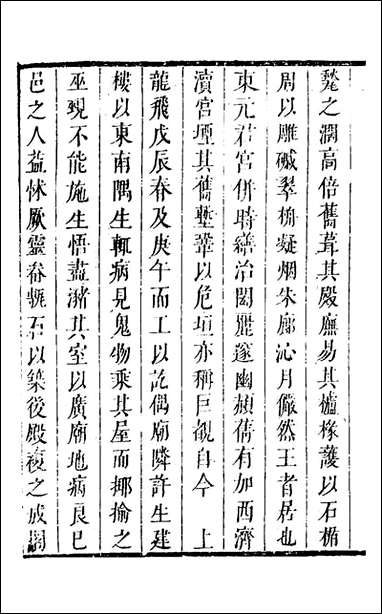 甃之濶高倍舊葺其殿廡易其櫨椽護以石楯
周以雕檻翠桷凝烟朱廊沁月儼然王者居也
東元君宮併時繕治閎麗邃幽蘋蒨有加西濟
瀆宮堙其舊塹葦以危垣亦稱巨觀自今　上
龍飛戊辰春及庚午而工以訖偶廟隣許生建
樓以東南隅生輒病見鬼物乘其屋而揶揄之
巫覡不能施生悟盡瀦其室以廣廟地病良已
邑之人益怵厥靈眷甃石以築後殿複之成閣